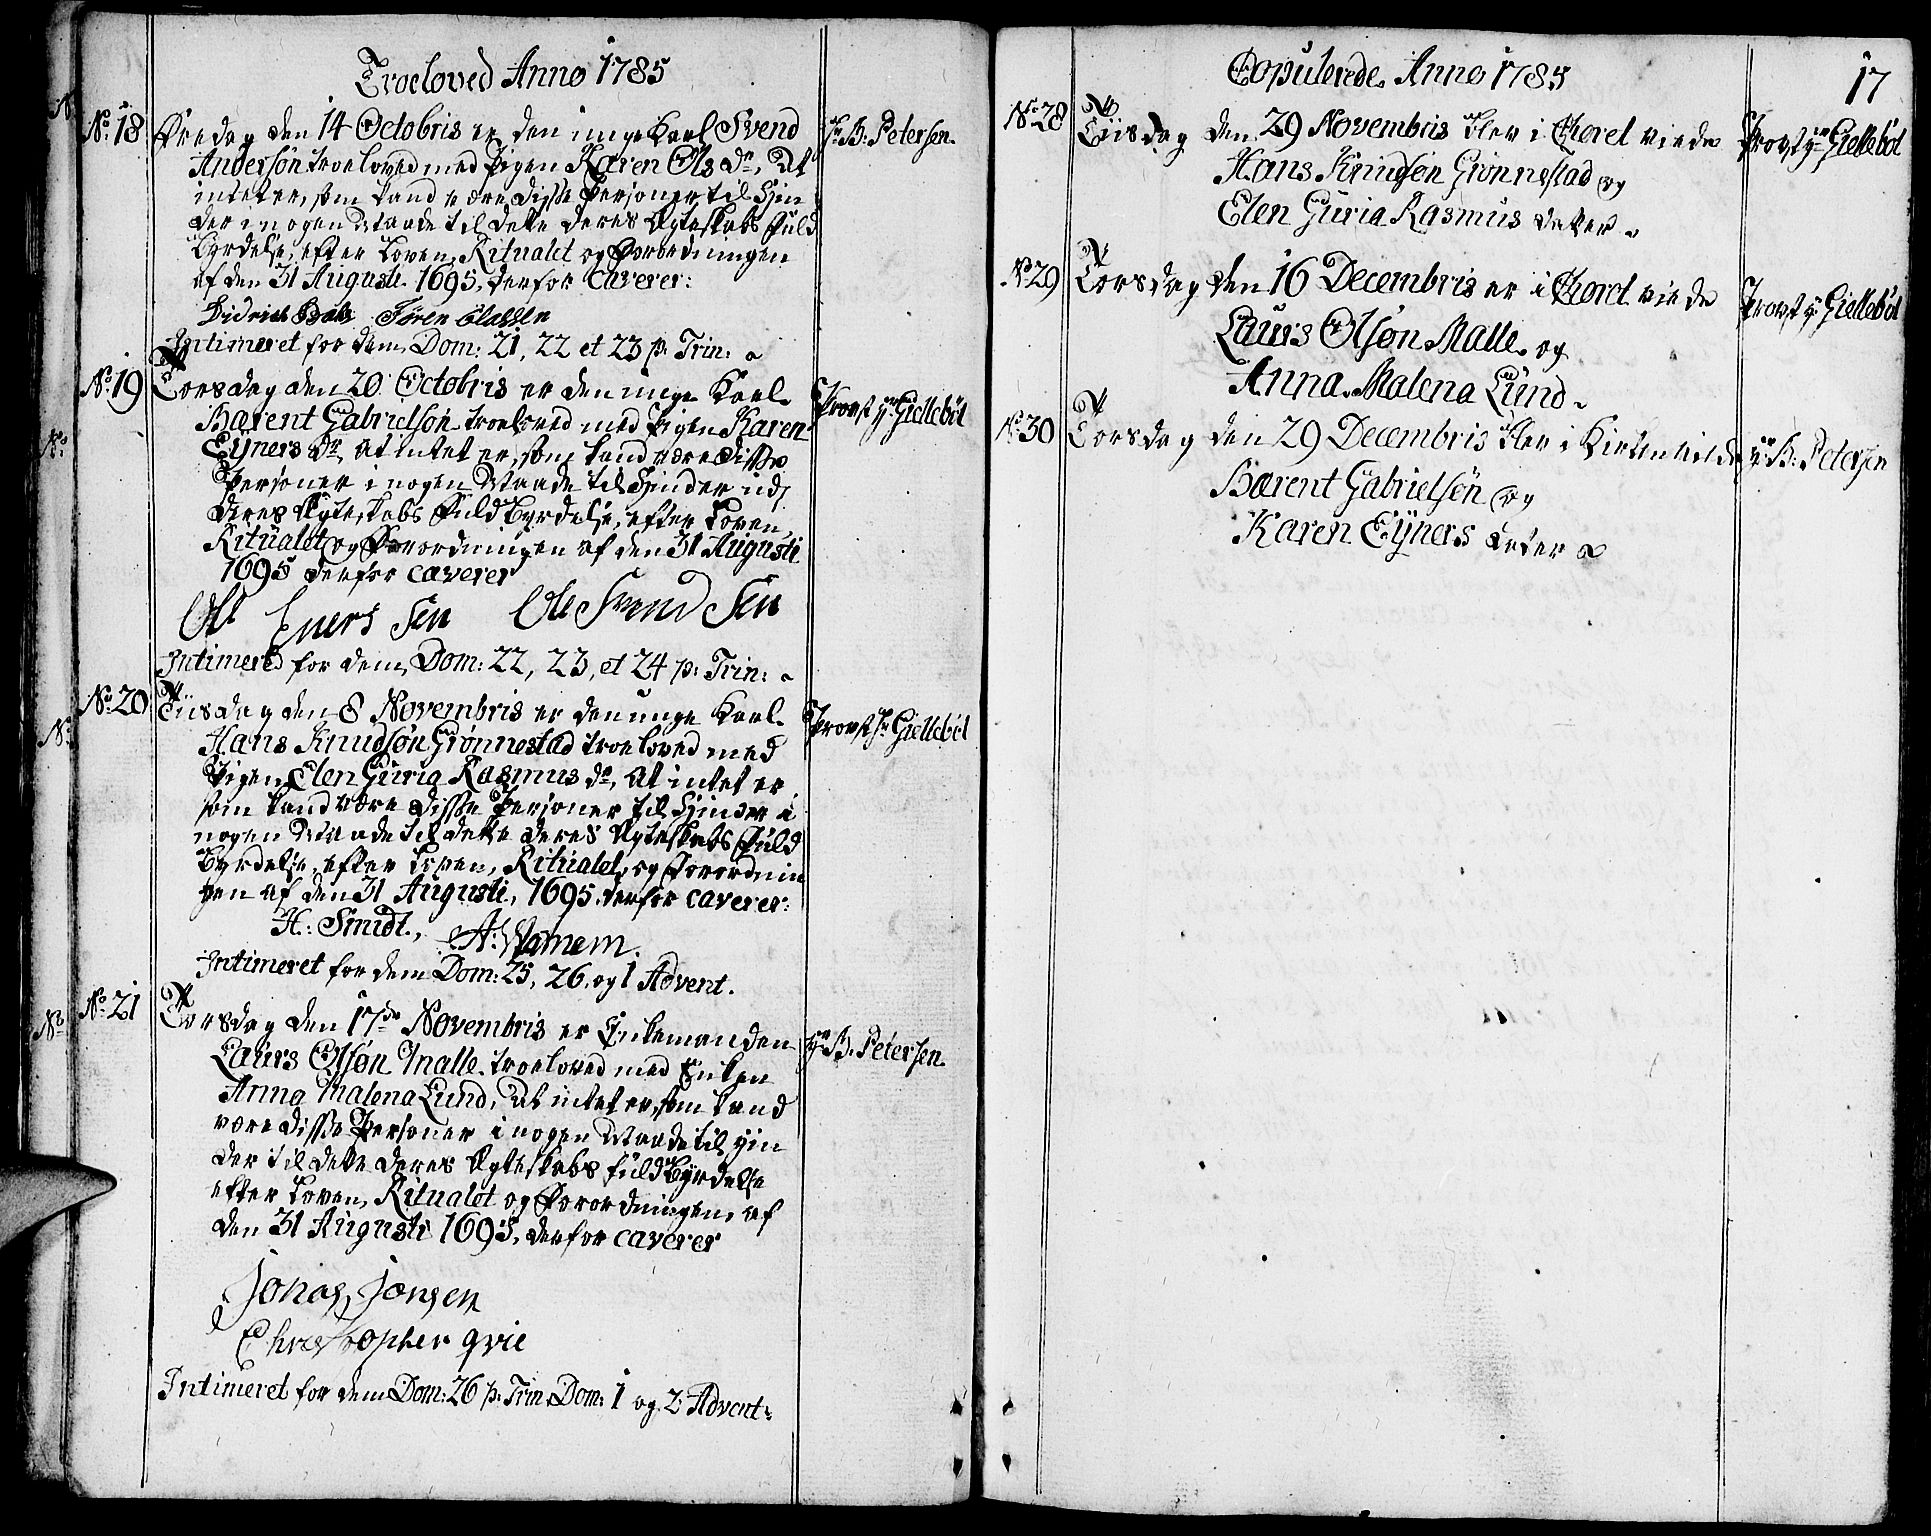 Troeloved Anno 1785
No. 18 Fredag den 14 Octobris er den unge Karl Svend
Hr. B. Petersen.
Andersøn troeloved med Pigen Karen Ols Dr., At
intet er, som kand være disse Personer til Hin
der i nogen Maade til dette deres Ægteskabs Fuld
Byrdelse, efter Loven, Ritualet og Forordningen
af den 31 Augusti 1695, derfor Caverer:
Didrich Søren Classen
Intimeret for dem Dom: 21, 22 et 23 p. Trin:
No. 19 Torsdag den 20 Octobris er den unge Karl
Provst Hr. Giellebøl
Barent Gabrielsøn troeloved med Pigen Karen
Eyners Dr, at intet er, som kand være disse
Personer i nogen Maade til Hinder ud;
deres Ægteskabs Fuld Byrdelse, efter Loven,
Ritualet og Forordningen af den 31 Augusti
1695 derfor caverer
Ole Eners Sen Ole Svend Sen
Intimered for dem Dom: 22, 23, et 24 p: Trin:
No. 20 Tiisdag den 8 Novembris er den unge Karl
Provst Hr. Giellebøl
Hans Knudsøn Grønnestad troeloved med
Pigen Elen Guria Rasmus dr, At intet er
som kand være disse Personer til Hinder i
nogen Maade til dette deres Ægteskabs Fuld
Byrdelse, efter Loven, Ritualet, og Forordnin
gen af den 31 Augusti, 1695 derfor caverer:
H: Smidt., A:
Intimeret for dem Dom: 25, 26, og 1 Advent.
No. 21 Torsdag den 17de Novembris er Enkemanden
Hr. B. Petersen
Laurs Olsøn Malle troeloved med Enken
Anna Malena Lund, At intet er, som kand
være disse Personer i nogen Maade til Hin
der til dette deres Ægteskabs fuldbyrdelse
efter Loven, Ritualet og Forordningen, af
den 31 Augusti 1695, derfor caverer
Jonas Jonsen
Christopher qvie
Intimeret for dem Dom: 26 p: Trin. Dom: 1 og 2 Advent
Copulerede Anno 1785
17
No. 28 Tiisdag den 29 Novembris blev i Choret viede
Provst Hr. Giellebøl
Hans Knudsøn Grønnestad og
Elen Guria Rasmus datter
No. 29 Torsdag den 16 Decembris er i Choret viede
Provst Hr. Giellebøl
Laurs Olsøn Malle og
Anna Malena Lund
No. 30 Torsdag den 29 Decembris blev i Kirken viede
Hr. B: Petersen
Barent Gabrielsøn og
Karen Eyners datter